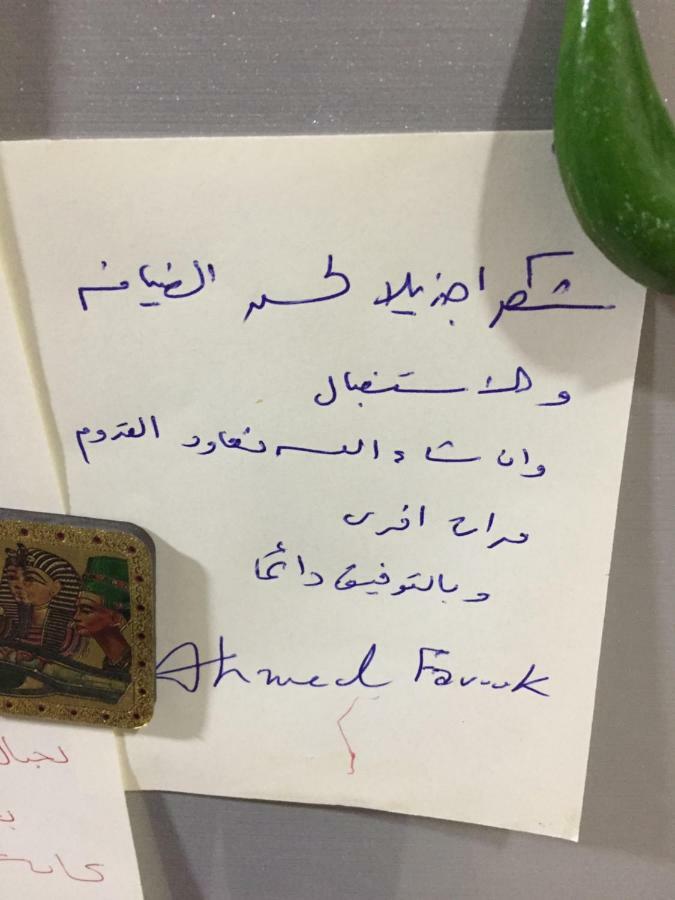 شكرا جزيلا لحسن الضيافه
والاستقبال
وان شاء الله نعاود القدوم
مرات اخرى
وبالتوفيق دائما
Ahmed Farouk